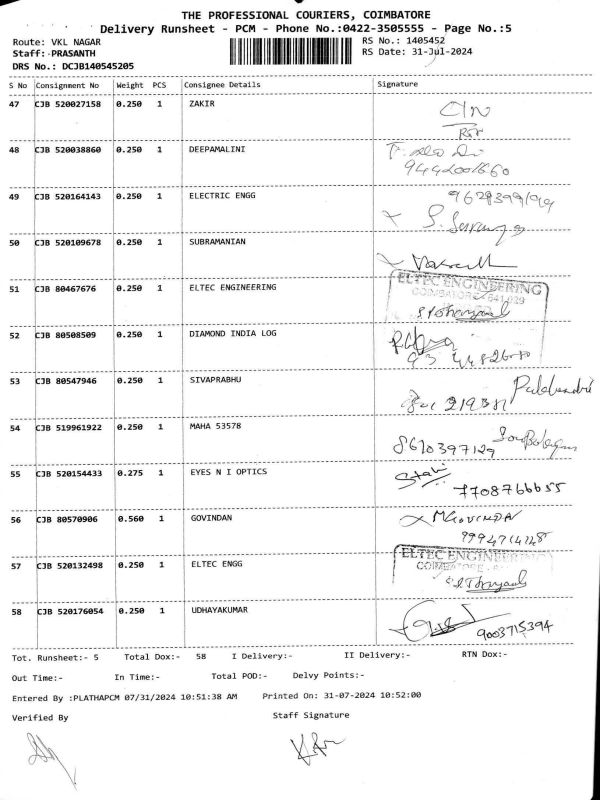 THE PROFESSIONAL COURIERS, COIMBATORE
Delivery Runsheet - PCM - Phone No.:0422-3505555 - Page No.:5
Route: VKL NAGAR RS No.: 1405452
Staff: PRASANTH RS Date: 31-Jul-2024
DRS No.: DCJB140545205
S No Consignment No Weight PCS Consignee Details Signature
47 CJB 520027158 0.250 1 ZAKIR
48 CJB 520038860 0.250 1 DEEPAMALINI
49 CJB 520164143 0.250 1 ELECTRIC ENGG
50 CJB 520109678 0.250 1 SUBRAMANIAN
51 CJB 80467676 0.250 1 ELTEC ENGINEERING ELTEC ENGINEERING
52 CJB 80508509 0.250 1 DIAMOND INDIA LOG
53 CJB 80547946 0.250 1 SIVAPRABHU
54 CJB 519961922 0.250 1 MAHA 53578
8610397129
55 CJB 520154433 0.275 1 EYES N I OPTICS
7708766655
56 CJB 80570906 0.560 1 GOVINDAN M Govindan
57 CJB 520132498 0.250 1 ELTEC ENGG ELTEC ENGINEERING
58 CJB 520176054 0.250 1 UDHAYAKUMAR
9003715394
Tot. Runsheet:- 5 Total Dox:- 58 I Delivery:- II Delivery:- RTN Dox:-
Out Time:- In Time:- Total POD:- Delvy Points:-
Entered By :PLATHAPCM 07/31/2024 10:51:38 AM Printed On: 31-07-2024 10:52:00
Verified By Staff Signature